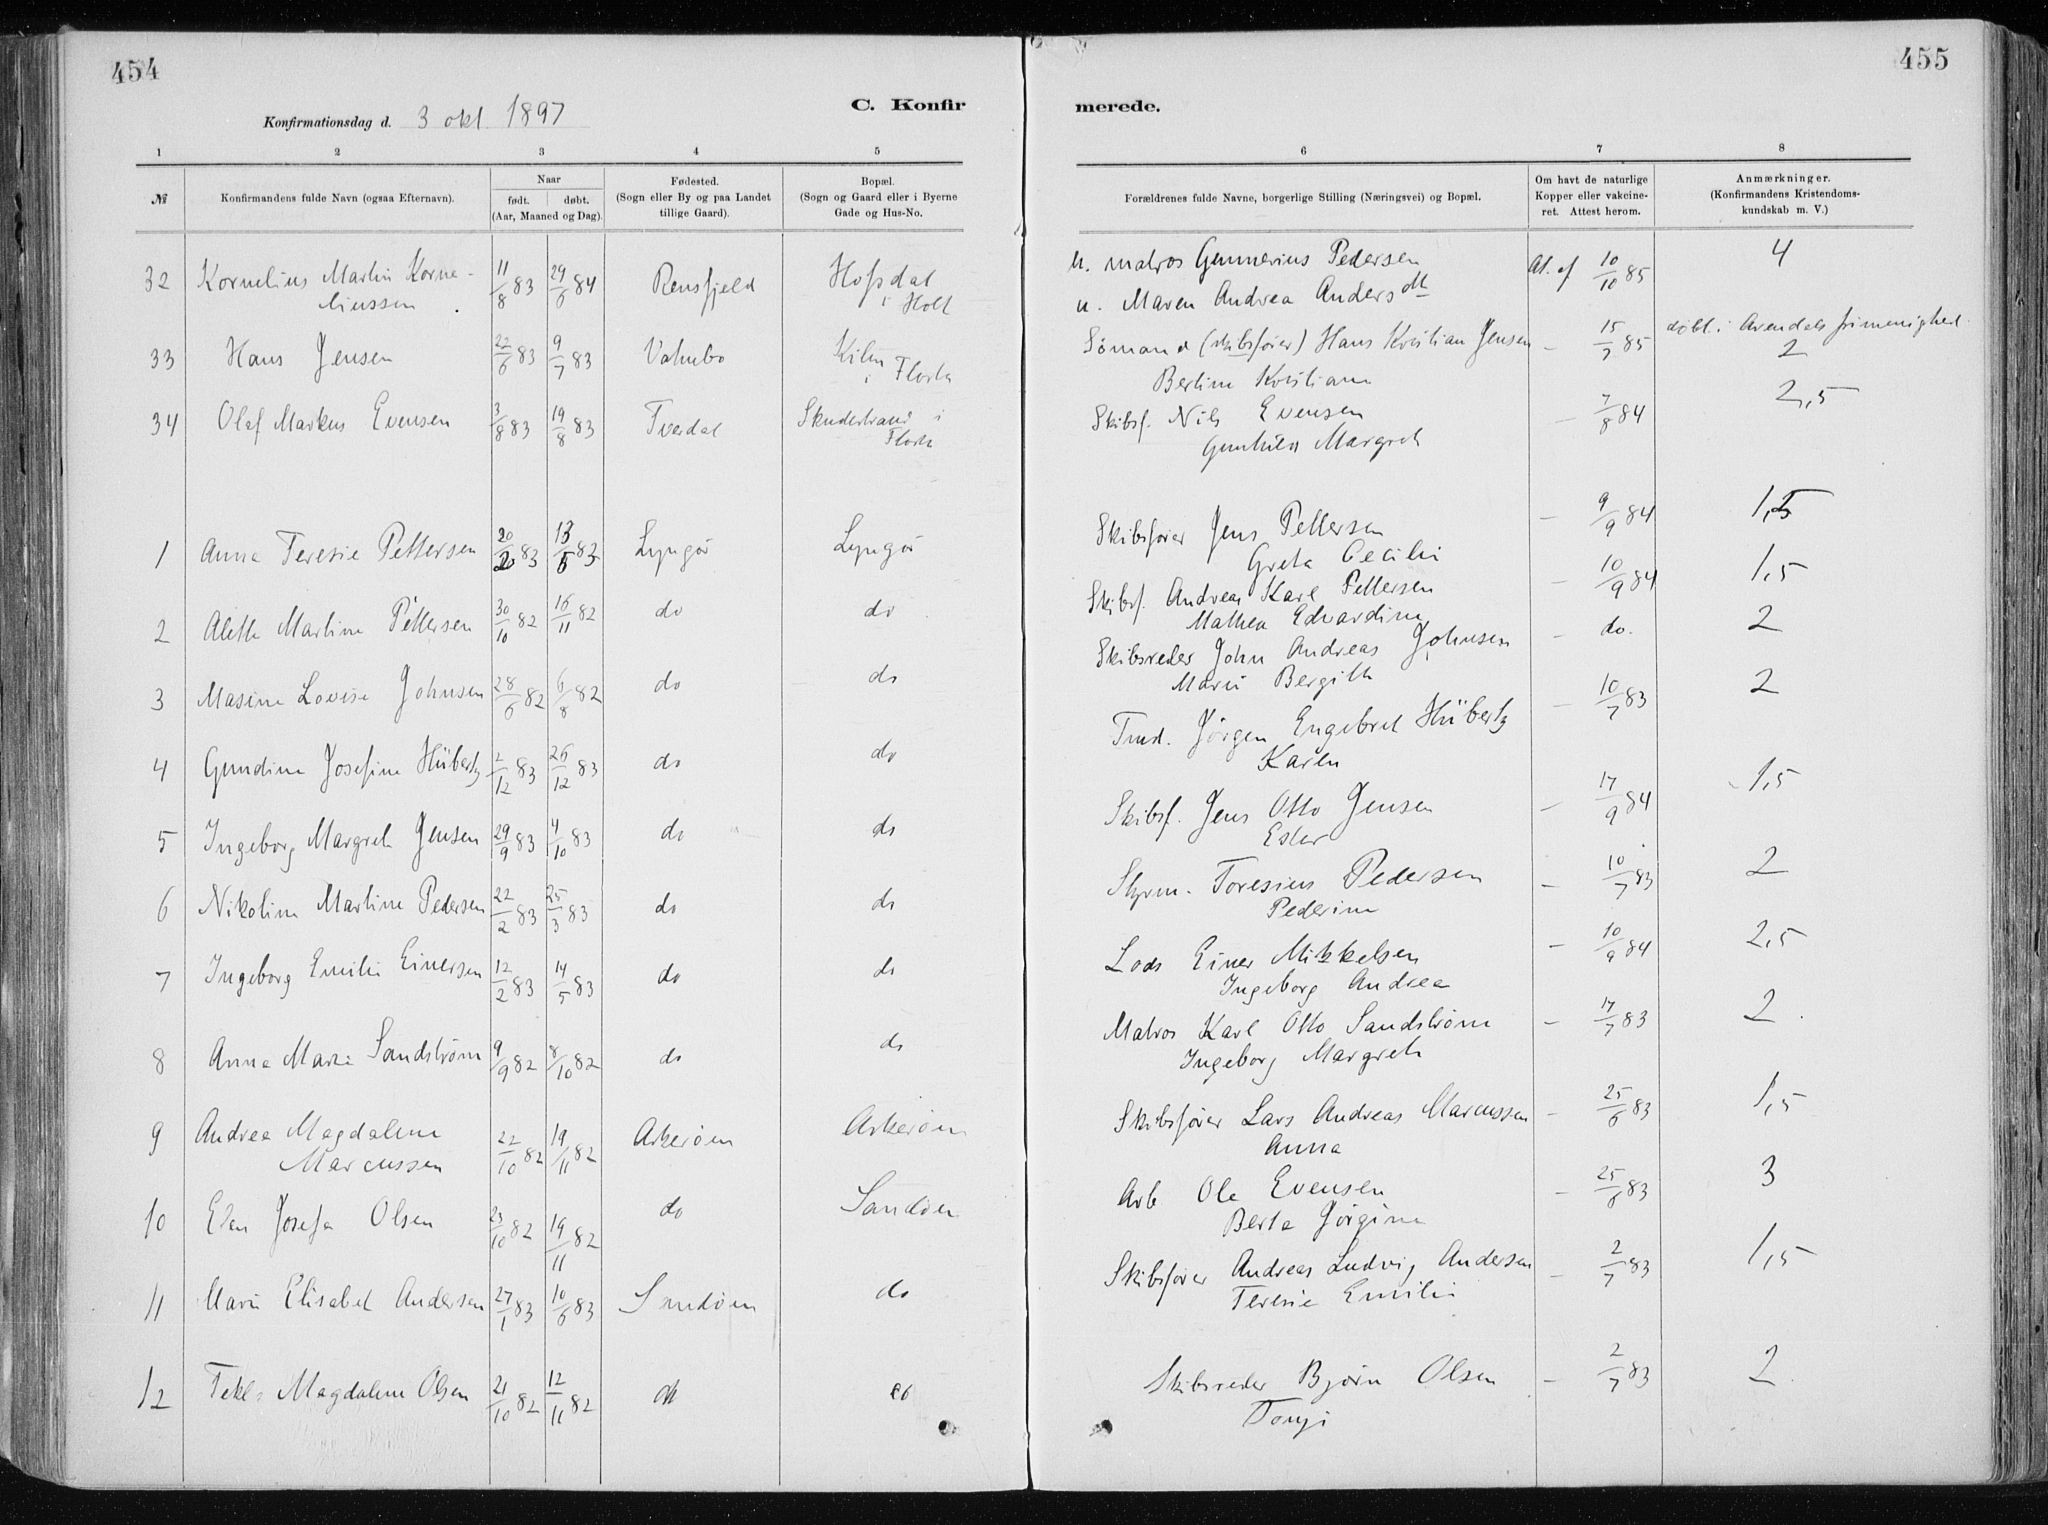 454
455
C. Konfir
merede.
Konfirmationsdag d. 3 okt. 1897
1 2 3 4 5 6 7 8
№ Konfirmandens fulde Navn (ogsaa Efternavn). Naar født. døbt. (Aar, Maaned og Dag). Fødested. (Sogn eller By og paa Landet tillige Gaard). Bopæl. (Sogn og Gaard eller i Byerne Gade og Hus-No. Forældrenes fulde Navne, borgerlige Stilling (Næringsvei) og Bopæl. Om havt de naturlige Kopper eller vakcineret. Attest herom. Anmærkninger. (Konfirmandens Kristendomskundskab m. V.)
32 Kornelius Martin Korne- 11/8 83 29/6 84 Rensfjeld u. matros Gunnerius Pedersen At. af 10/10 85 4
liussen i Holt u. Maren Andrea Andersdtt
33 Hans Jensen 22/6 83 9/7 83 Sömand (skibsfører) Hans Kristian Jensen – 15/7 85 döbt i Arendals frimenighed. 2
i Flosta Bertine Kristiane
34 Olaf Markus Evensen 3/8 83 19/8 83 Tverdal i Skibsf. Nils Evensen – 7/8 84 2,5
Flosta Gunhild Margret
1 Anna Teresie Pettersen 83 13/5 83 Lyngör Lyngör Skibsfører Jens Pettersen – 9/9 84 1,5
Greta Cecilie
2 Alette Martine Pettersen 30/10 82 16/11 82 do do Skibsf. Andreas Karl Pettersen – 10/9 84 1,5
Mathea Edvardine
3 Masine Lovise Johnsen 28/6 82 6/8 82 do do Skibsreder John Andreas Johnsen – do. 2
Marie Bergitte
4 Gundine Josefine Hübertz 2/12 83 26/12 83 do do Jörgen Engebret Hübertz – 10/7 83 2
Karen
5 Ingeborg Margrete Jensen 29/9 83 4/10 83 do do Skibsf. Jens Otto Jensen – 17/9 84 1,5
Ester
6 Nikoline Martine Pedersen 22/2 83 25/3 83 do do Styrm. Toresius Pedersen – 10/7 83 2
Pederine
7 Ingeborg Emilie Einersen 12/2 83 14/5 83 do do Lods Einer Mikkelsen – 10/9 84 2,5
Ingeborg Andrea
8 Anna Marie Sandström 9/9 82 8/10 82 do do Matros Karl Otto Sandström – 17/7 83 2
Ingeborg Margrete
9 Andrea Magdalene 22/10 82 19/11 82 Askerøen Askerøen Skibsfører Lars Andreas Marcussen – 25/6 83 1,5
Marcussen Anna
10 Josefa Olsen 23/10 82 19/11 82 do Sandøen Arb Ole Evensen – 25/6 83 3
Berte Jörgine
11 Marie Elisabet Andersen 27/1 83 10/6 83 Sandøen do Skibsfører Andreas Ludvig Andersen – 2/7 83 1,5
Teresie Emilie
12 Tekla Magdalene Olsen 21/10 82 12/11 82 do do Skibsreder Bjørn Olsen – 2/7 83 2